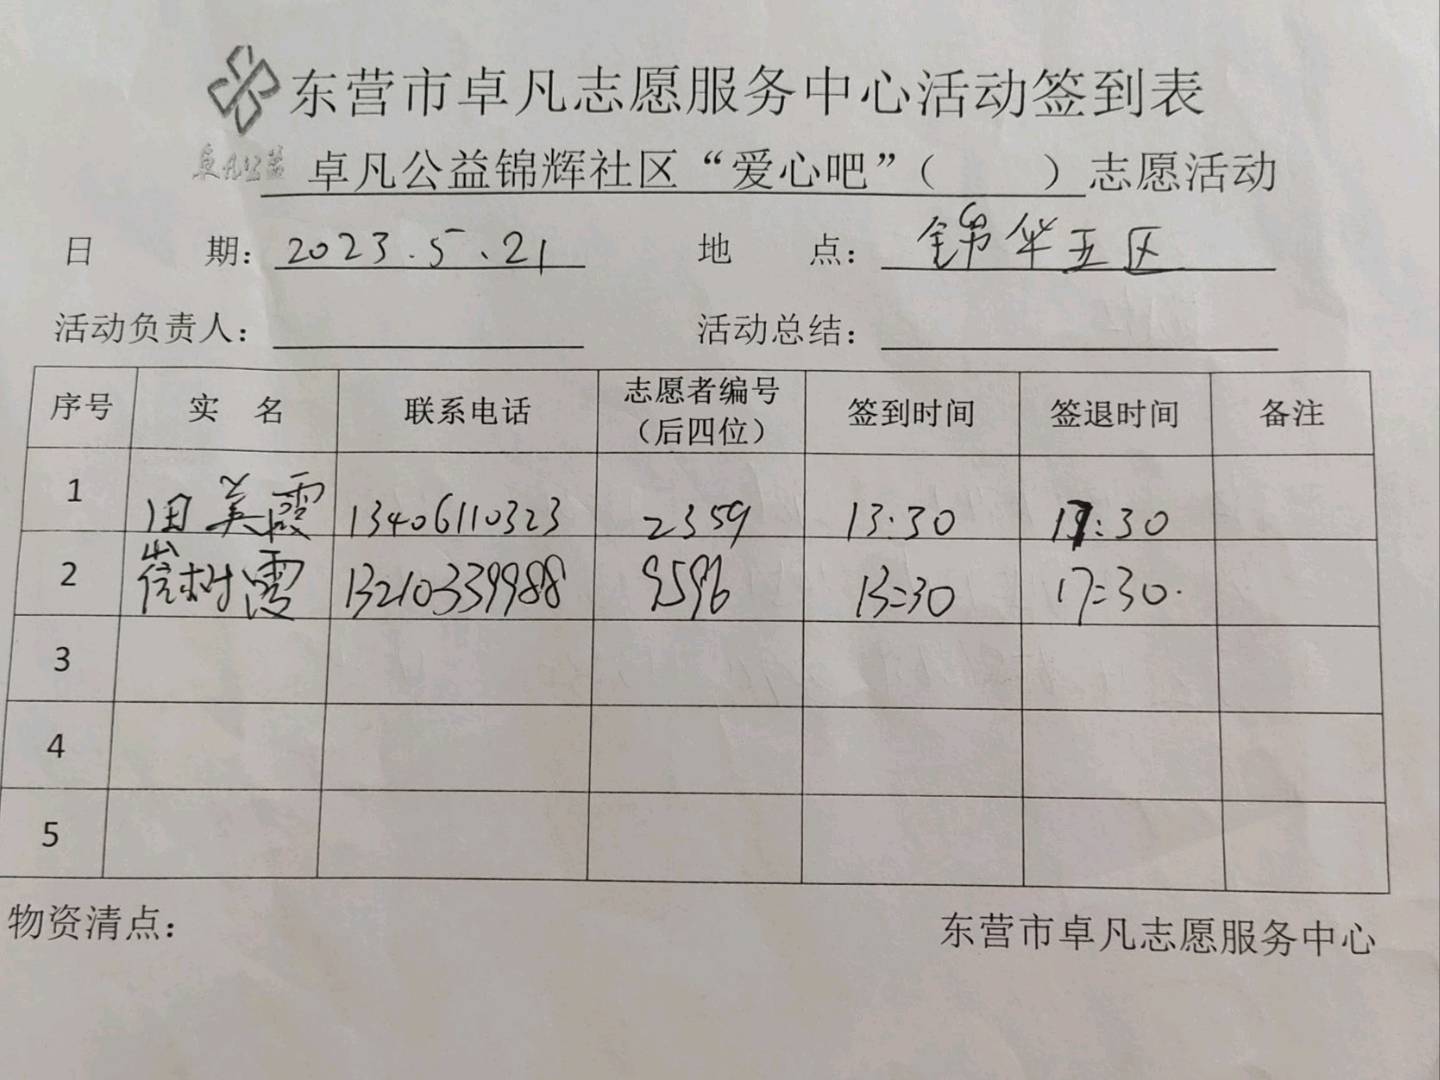 东营市卓凡志愿服务中心活动签到表
卓凡公益
卓凡公益锦辉社区“爱心吧”（　　）志愿活动
日　期：2023.5.21　地　点：锦华五区
活动负责人：　活动总结：
序号　实　名　联系电话　志愿者编号（后四位）　签到时间　签退时间　备注
1　田美霞　13406110323　2359　13:30　17:30
2　崔树霞　13210339988　9596　13:30　17:30.
3
4
5
物资清点：　东营市卓凡志愿服务中心